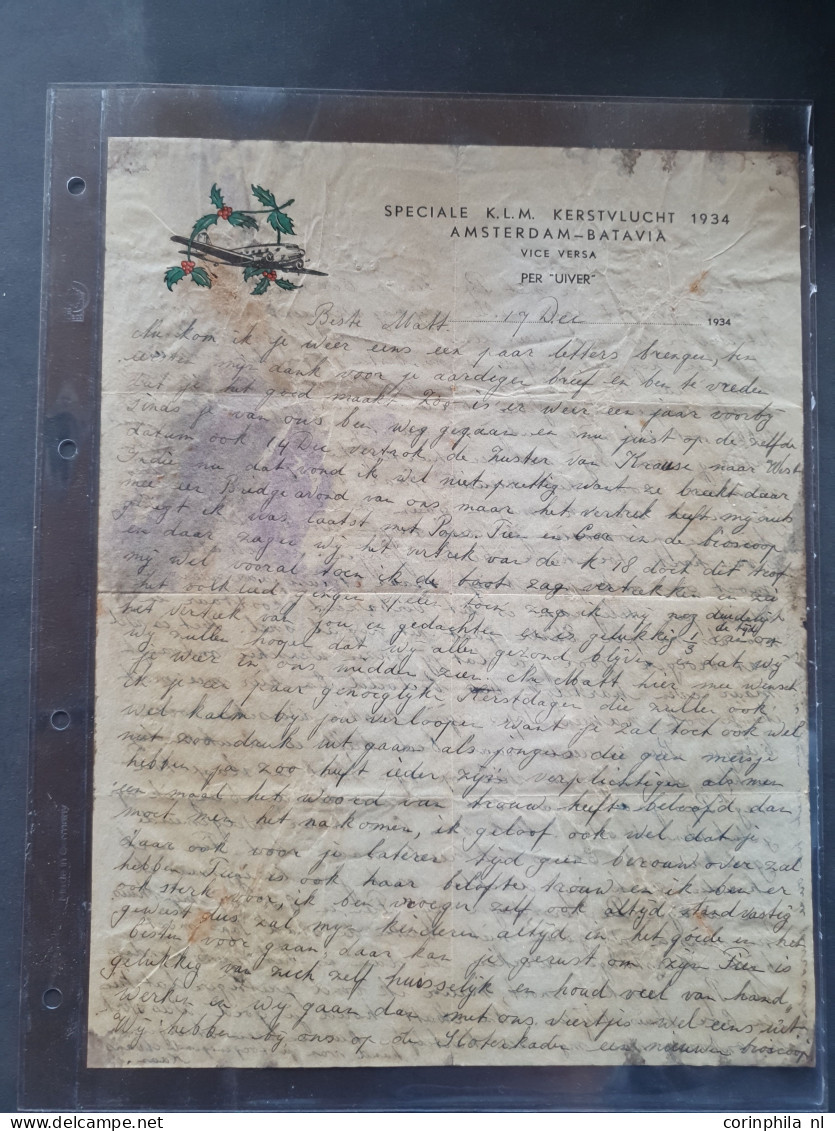 SPECIALE K.L.M. KERSTVLUCHT 1934
AMSTERDAM–BATAVIA
VICE VERSA
PER "UIVER"
Beste Matt 17 Dec 1934
Nu kom ik je weer eens een paar letters brengen, ten
eerste mijn dank voor je aardigen brief en ben te vreden
dat je het goed maakt. Zoo is er weer een jaar voorbij
sinds je van ons ben weg gegaan en nu juist op de zelfde
datum ook 14 Dec vertrok de Zuster van Krause naar West
Indie nu dat vond ik wel niet prettig want ze breekt daar
mee een Bridge avond van ons maar het vertrek heeft mij niets
gezegt ik was laatst met Pops Tien en Cor in de bioscoop
en daar zagen wij het vertrek van de K 18 doch dit trof
mij wel vooral toen ik de boot zag vertrekken en zie
het volkslied gingen spelen toen zag ik mij nog duidelijk
het vertrek van jou in gedachten en is gelukkig 1/3 de tijd van om
Wij zullen hopen dat wij allen gezond blijven en dat wij
je weer in ons midden zien. Nu Matt hier mee wensch
ik je een paar genoeglijke Kerstdagen die zullen ook
wel kalm bij jou verloopen want je zal toch ook wel
niet zoo druk uit gaan als jongens die geen meisje
hebben ja zoo heeft ieder zijn verplichtigen als men
een maal het woord van trouw heeft beloofd dan
moet men het na komen, ik geloof ook wel dat je
daar ook voor je lateren tijd geen berouw over zal
hebben Tien is ook haar belofte trouw en ik ben er
ook sterk voor, ik ben vroeger zelf ook altijd standvastig
geweest dus zal mijn kinderen altijd in het goede en het
besten voor gaan daar kan je gerust om zijn Tien is
gelukkig van zich zelf huisselijk en houd veel van hand
werken en wij gaan dan met ons viertjes wel eens uit
Wij hebben bij ons op de Sloterkade een nieuwen bioscoop
Made in Germany
corinphila nl